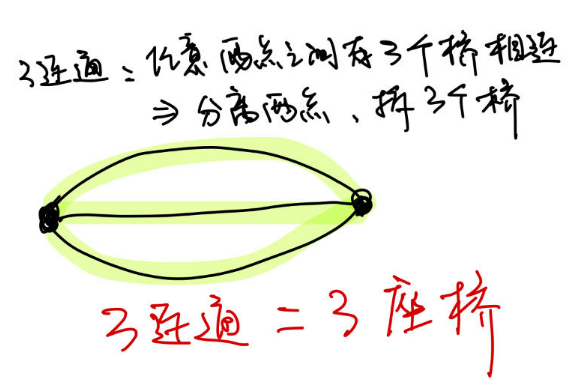 3连通：任意两点之间存3个桥相连
⇒ 分离两点、拆3个桥
3连通 = 3座桥